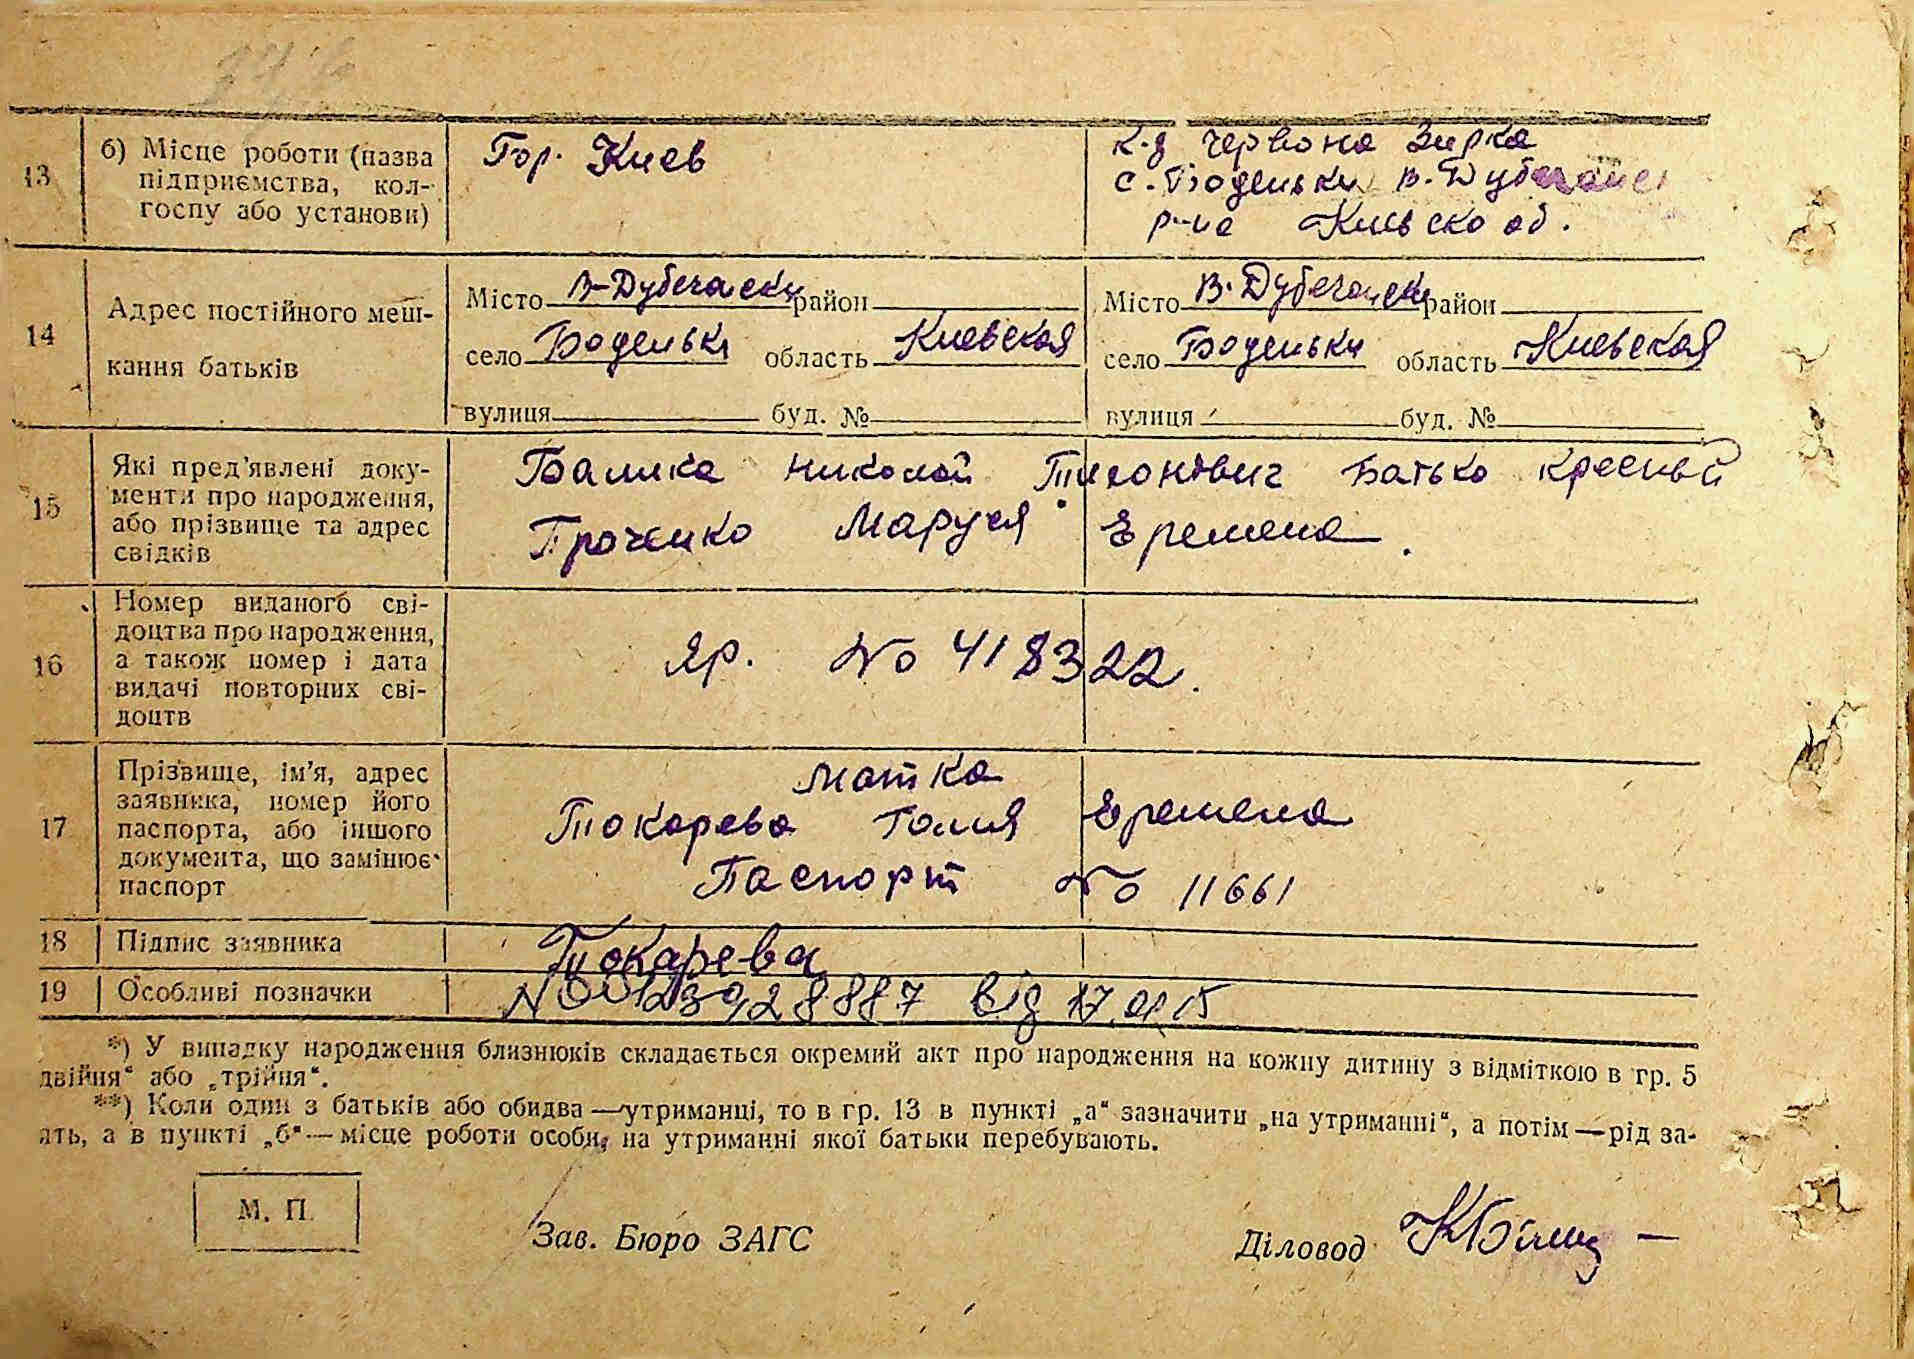 13
б) Місце роботи (назва
підприємства, кол-
госпу або установи)
Гор. Киев
к-з Червона Зирка
с. Боденьки В. Дубечанск
р-на Киевско об.
14
Адрес постійного меш-
кання батьків
Місто В-Дубечански район
село Боденьки область Киевская
вулиця буд. №
Місто В. Дубечански район
село Боденьки область Киевская
вулиця буд. №
15
Які пред'явлені доку-
менти про народження,
або прізвище та адрес
свідків
Балика Николай Тихонович Батько кресный
Проченко Маруся Еремена.
16
Номер виданого сві-
доцтва про народження,
а також номер і дата
видачі повторних сві-
доцтв
яр. No 418322.
17
Прізвище, ім'я, адрес
заявника, номер його
паспорта, або іншого
документа, що замінює
паспорт
матка
Токарева Галия Еремена
Паспорт No 11661
18 Підпис заявника
Токарева
19 Особливі позначки
від 17.01.15
*) У випадку народження близнюків складається окремий акт про народження на кожну дитину з відміткою в гр. 5
двійня" або „трійня".
**) Коли один з батьків або обидва — утриманці, то в гр. 13 в пункті „а" зазначити „на утриманні", а потім — рід за-
ять, а в пункті „б" — місце роботи особи, на утриманні якої батьки перебувають.
М. П.
Зав. Бюро ЗАГС
Діловод